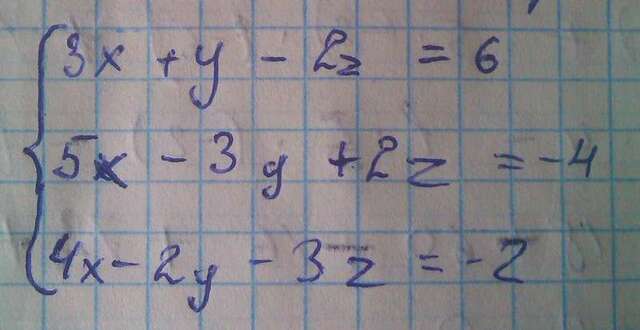 3x + y - 2z = 6
5x - 3y + 2z = -4
4x - 2y - 3z = -2